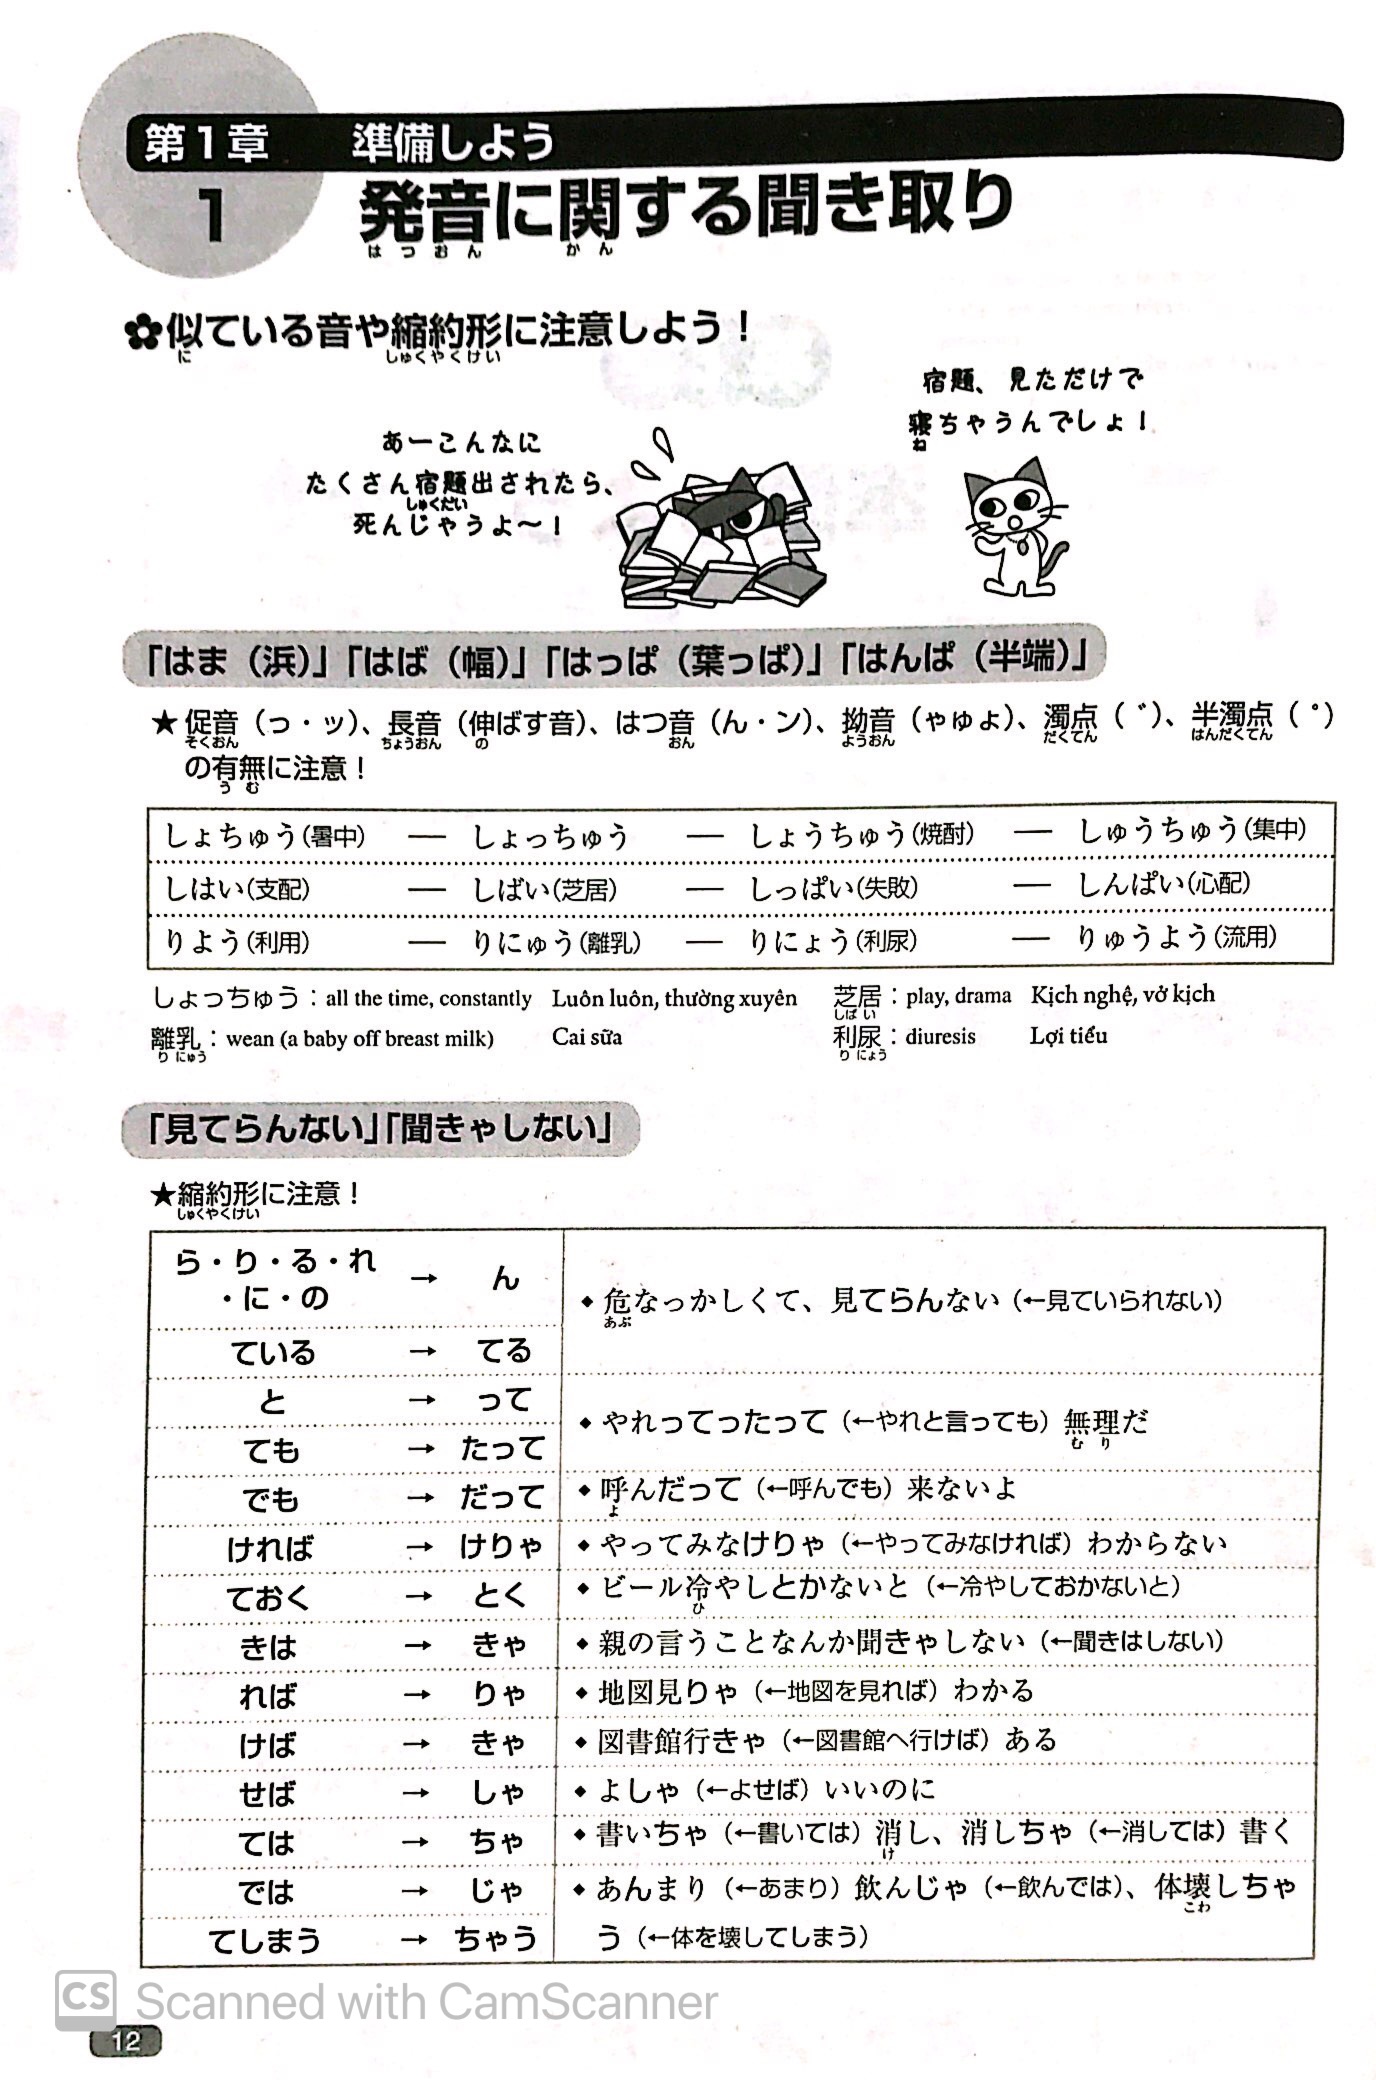 第1章 準備しよう
1 発音に関する聞き取り
はつおん かん
✿似ている音や縮約形に注意しよう！
に しゅくやくけい
宿題、見ただけで
寝ちゃうんでしょ！
ね
あーこんなに
たくさん宿題出されたら、
しゅくだい
死んじゃうよ～！
「はま（浜）」「はば（幅）」「はっぱ（葉っぱ）」「はんぱ（半端）」
★促音（っ・ッ）、長音（伸ばす音）、はつ音（ん・ン）、拗音（ゃゅょ）、濁点（゛）、半濁点（゜）
そくおん ちょうおん の おん ようおん だくてん はんだくてん
の有無に注意！
う む
しょちゅう(暑中) — しょっちゅう — しょうちゅう(焼酎) — しゅうちゅう(集中)
しはい(支配) — しばい(芝居) — しっぱい(失敗) — しんぱい(心配)
りよう(利用) — りにゅう(離乳) — りにょう(利尿) — りゅうよう(流用)
しょっちゅう：all the time, constantly Luôn luôn, thường xuyên 芝居：play, drama Kịch nghệ, vở kịch
しば い
離乳：wean (a baby off breast milk) Cai sữa 利尿：diuresis Lợi tiểu
り にゅう り にょう
「見てらんない」「聞きゃしない」
★縮約形に注意！
しゅくやくけい
ら・り・る・れ
・に・の → ん
ている → てる
◆危なっかしくて、見てらんない（←見ていられない）
あぶ
と → って
ても → たって
◆やれってったって（←やれと言っても）無理だ
む り
でも → だって ◆呼んだって（←呼んでも）来ないよ
よ
ければ → けりゃ ◆やってみなけりゃ（←やってみなければ）わからない
ておく → とく ◆ビール冷やしとかないと（←冷やしておかないと）
ひ
きは → きゃ ◆親の言うことなんか聞きゃしない（←聞きはしない）
れば → りゃ ◆地図見りゃ（←地図を見れば）わかる
けば → きゃ ◆図書館行きゃ（←図書館へ行けば）ある
せば → しゃ ◆よしゃ（←よせば）いいのに
ては → ちゃ ◆書いちゃ（←書いては）消し、消しちゃ（←消しては）書く
け
では → じゃ ◆あんまり（←あまり）飲んじゃ（←飲んでは）、体壊しちゃ
こわ
てしまう → ちゃう う（←体を壊してしまう）
CS Scanned with CamScanner
12